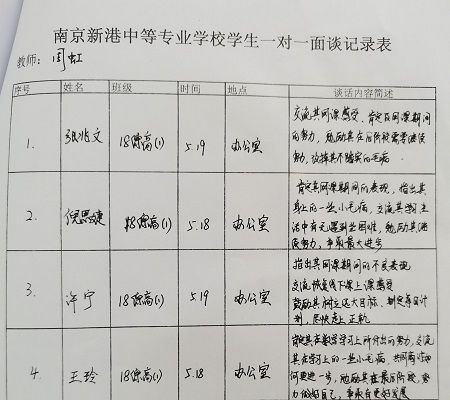 南京新港中等专业学校学生一对一面谈记录表
教师：闫虹
序号 姓名 班级 时间 地点 谈话内容简述
1. 张兆文 18综高(1) 5.19 办公室
交流其网课感受、肯定在网课期间
的努力，勉励其在后阶段需要继续
努力，改掉其不踏实的毛病.
2. 倪思婕 18综高(1) 5.18 办公室
肯定其网课期间的表现，指出其
身上的一些小毛病，交流其学习生
活中有无遇到些困难，勉励其继
续努力，争取最大进步
3. 许宁 18综高(1) 5.19 办公室
指出其网课期间的不良表现
交流恢复线下课上课感受
鼓励其树立远大目标、制定每日计
划，尽快走上正轨
4. 王玲 18综高(1) 5.18 办公室
肯定其在数学学习上所付出的努力，交流
其在学习上的一些小毛病，共同商讨如
何更进一步，勉励其在最后阶段，努
力做好自己，争取有更好发展